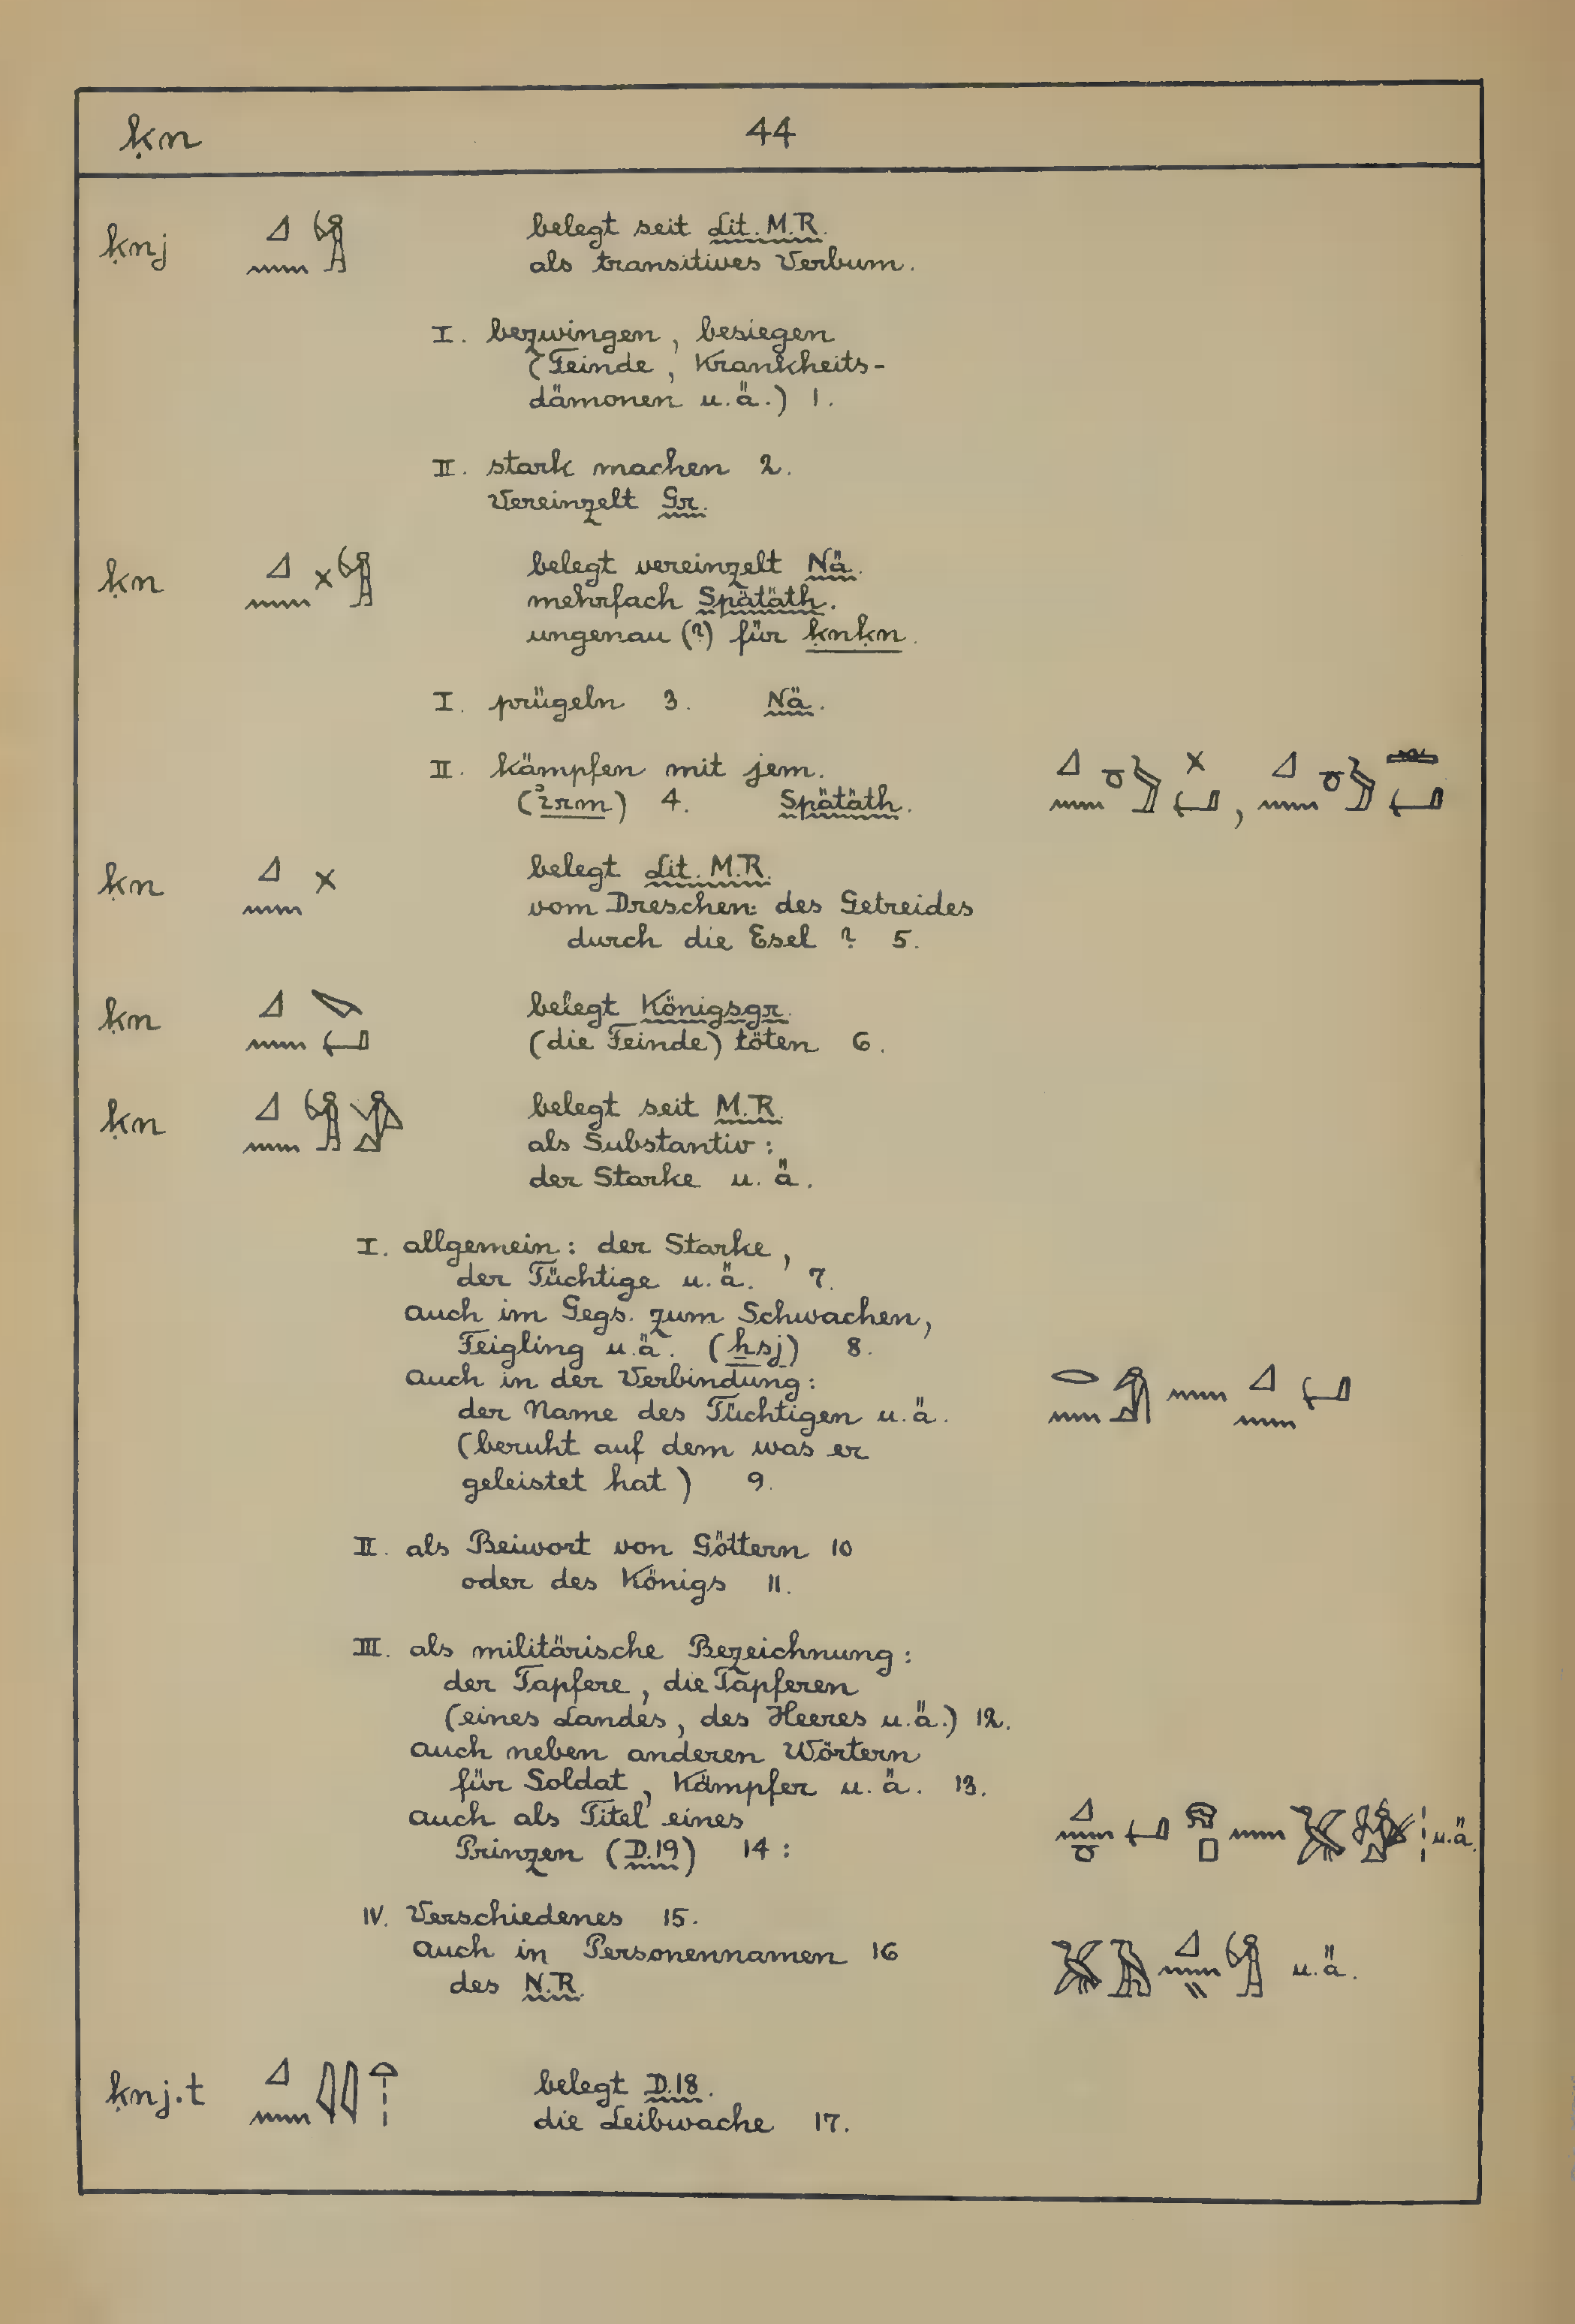 ḳn 44
ḳnj belegt seit Lit. M.R.
als transitives Verbum.
I. bezwingen, besiegen
(Feinde, Krankheits-
dämonen u.ä.) 1.
II. stark machen 2.
Vereinzelt Gr.
ḳn belegt vereinzelt Nä.
mehrfach Spätäth.
ungenau (?) für ḳnḳn.
I. prügeln 3. Nä.
II. kämpfen mit jem.
(irm) 4. Spätäth.
ḳn belegt Lit. M.R.
vom Dreschen des Getreides
durch die Esel ? 5.
ḳn belegt Königsgr.
(die Feinde) töten 6.
ḳn belegt seit M.R.
als Substantiv:
der Starke u.ä.
I. allgemein: der Starke,
der Tüchtige u.ä. 7.
auch im Gegs. zum Schwachen,
Feigling u.ä. (ẖsj) 8.
auch in der Verbindung:
der Name des Tüchtigen u.ä.
(beruht auf dem was er
geleistet hat) 9.
II. als Beiwort von Göttern 10
oder des Königs 11.
III. als militärische Bezeichnung:
der Tapfere, die Tapferen
(eines Landes, des Heeres u.ä.) 12.
auch neben anderen Wörtern
für Soldat, Kämpfer u.ä. 13.
auch als Titel eines
Prinzen (D.19) 14: u.ä.
IV. Verschiedenes 15.
auch in Personennamen 16 u.ä.
des N.R.
ḳnj.t belegt D.18.
die Leibwache 17.